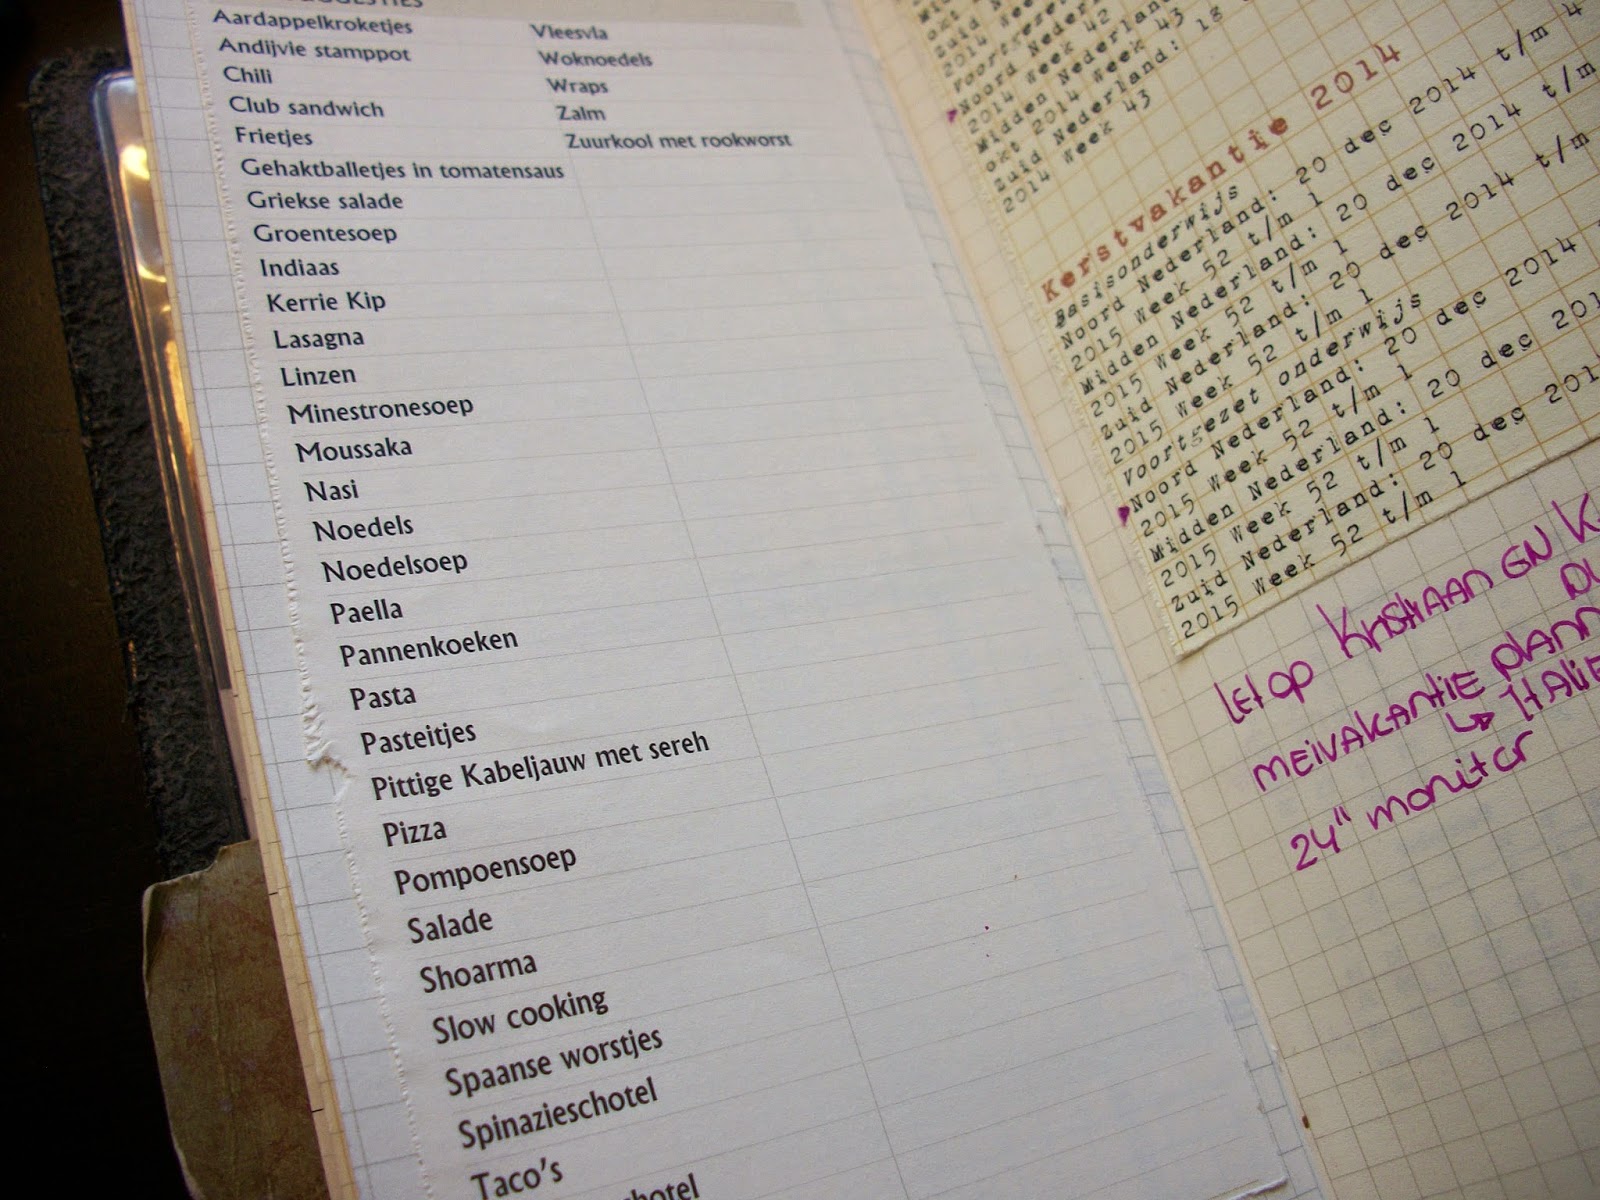 Aardappelkroketjes
Andijvie stamppot
Chili
Club sandwich
Frietjes
Gehaktballetjes in tomatensaus
Griekse salade
Groentesoep
Indiaas
Kerrie Kip
Lasagna
Linzen
Minestronesoep
Moussaka
Nasi
Noedels
Noedelsoep
Paella
Pannenkoeken
Pasta
Pasteitjes
Pittige Kabeljauw met sereh
Pizza
Pompoensoep
Salade
Shoarma
Slow cooking
Spaanse worstjes
Spinazieschotel
Taco's
Vleesvla
Woknoedels
Wraps
Zalm
Zuurkool met rookworst
2014 Week 42
Noord Nederland: 18
2014 Week 43
Midden Nederland:
okt 2014 Week 43
Zuid Nederland:
2014 Week 43
Kerstvakantie 2014
Basisonderwijs
Noord Nederland: 20 dec 2014 t/m 4
2015 Week 52 t/m 1
Midden Nederland: 20 dec 2014 t/m
2015 Week 52 t/m 1
Zuid Nederland: 20 dec 2014 t/m
2015 Week 52 t/m 1
Voortgezet onderwijs
Noord Nederland: 20 dec 2014
2015 Week 52 t/m 1
Midden Nederland: 20 dec
2015 Week 52 t/m 1
Zuid Nederland: 20 dec
2015 Week 52 t/m 1
Let op Kristiaan en
meivakantie
Italië
24" monitor